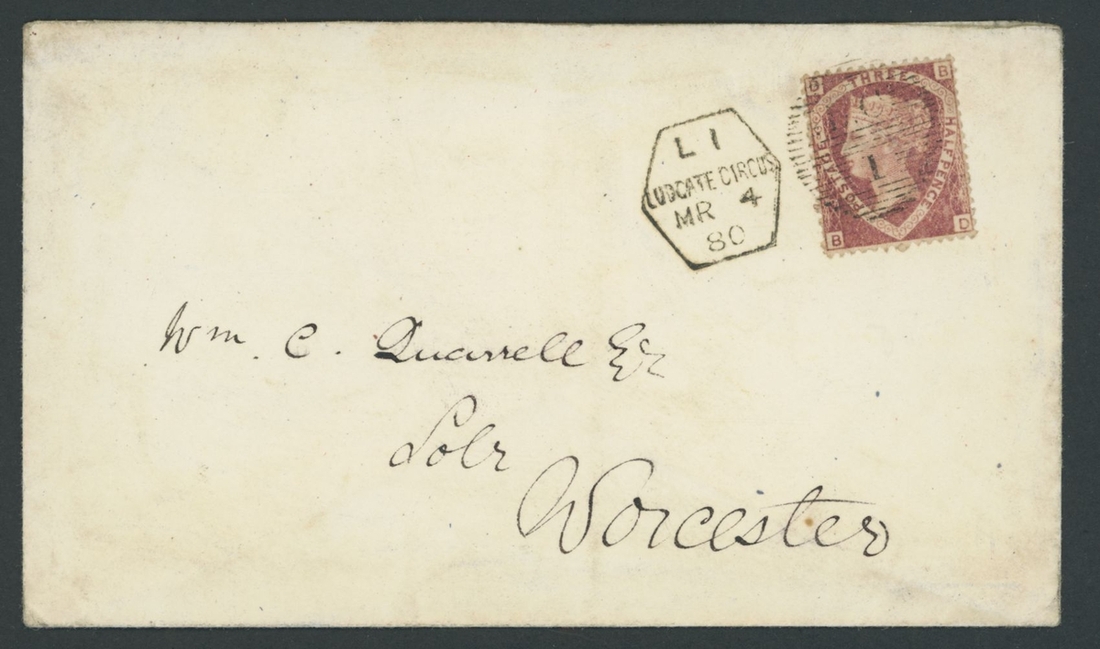 L 1
LUDGATE CIRCUS
MR 4
80
D B
THREE
HALFPENCE
POSTAGE
B D
1
Wm. C. Quarrell Esq
Solr
Worcester